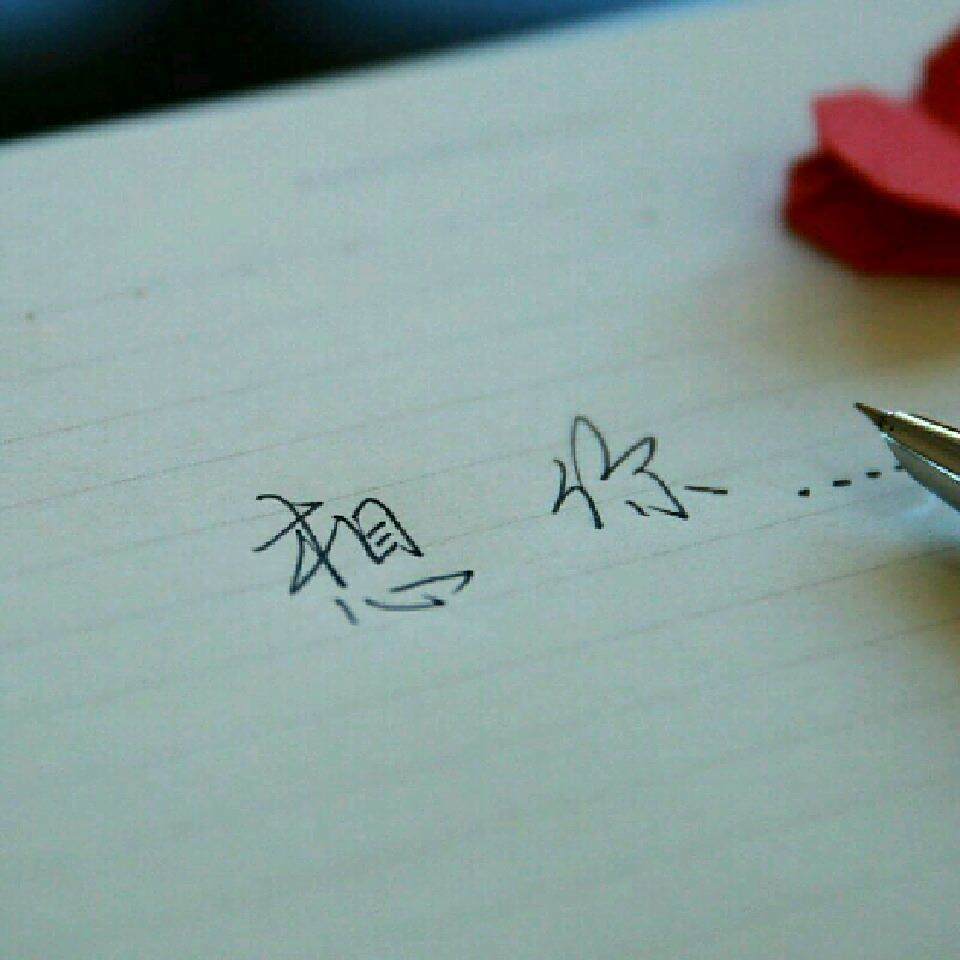 想 你.....